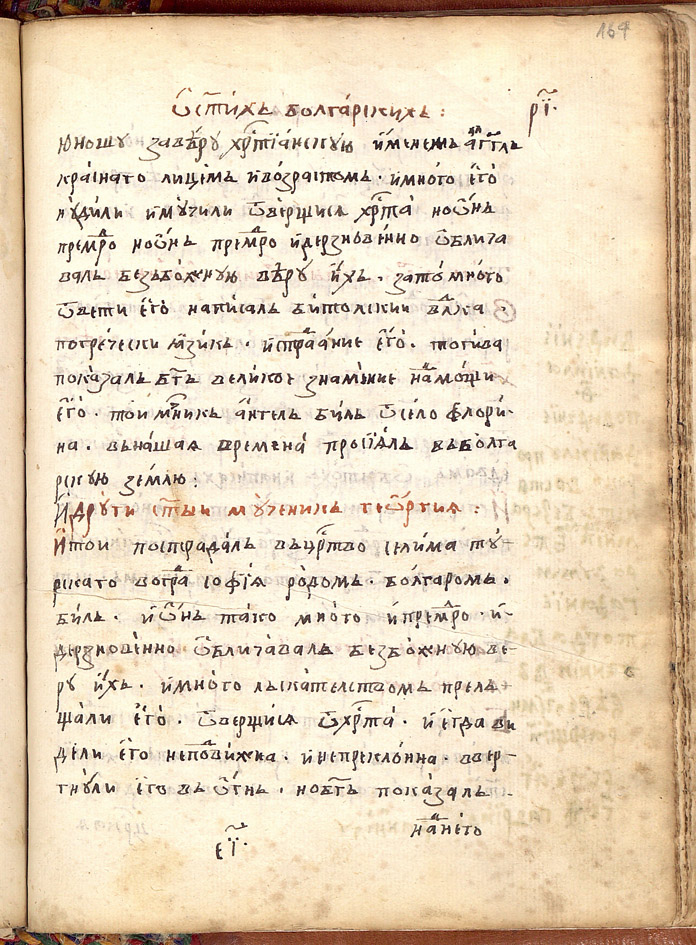 164
Ѡ҆ст҃ихъ болга́рскихъ : р҃і·
Юношу завѣ́ру хрⷭ҇тїа́нскую и҆́менемъ а҆гг҃лъ
кра́снаго лице́мъ и҆во́зрастомъ · и҆мно́го є҆го̀
нꙋ́дили и҆мꙋ́чили ѿве́рщися хрⷭ҇та̀ ноѻ҆́нъ
премꙋⷣро ноѻ҆́нъ премꙋⷣро и҆дерзнове́нно ѡ҆блича
валъ безбо́жную вѣ́ру и҆́хъ · зато́ мно́го
ѿвети є҆го̀ написалъ би́толскии влⷣка ·
погре́чески ꙗ҆зи́къ · и҆страⷣа́ние є҆го̀ · тогива
показа́лъ бг҃ъ вели́кое зна́мение наⷣмо́щи
є҆го̀ · то́и мч҃никъ а҆́нгелъ би́лъ ѿсе́ло флори́-
на · въна́шая времена̀ просїя́лъ въбо́лга
рскую зе́млю :
И҆дрꙋ́ги ст҃ы́и мꙋ́ченикъ гео́ргия ·
И҆то́и пострада́лъ въцрⷭ҇тво сели́ма тꙋ́-
рскаго вогра́ⷣ софїя ро́домъ · бо́лгаромъ ·
би́лъ · и҆ѻ҆́нъ тако мно́го и҆премꙋ́ⷣро · и҆-
дерзнове́нно ѡ҆блича́валъ безбо́жную ве́-
ру и҆́хъ · и҆мно́го лъска́телством прелъ
ща́ли є҆го̀ · ѿве́рщися ѿхрⷭ҇та̀ · и҆є҆гда̀ ви
дели є҆го̀ неподви́жна · и҆непрекло́нна · вве́рг
гнꙋ́ли є҆го̀ въ ѻ҆́гнь · нобг҃ъ показа́лъ
наⷣнего
є҃ї ·